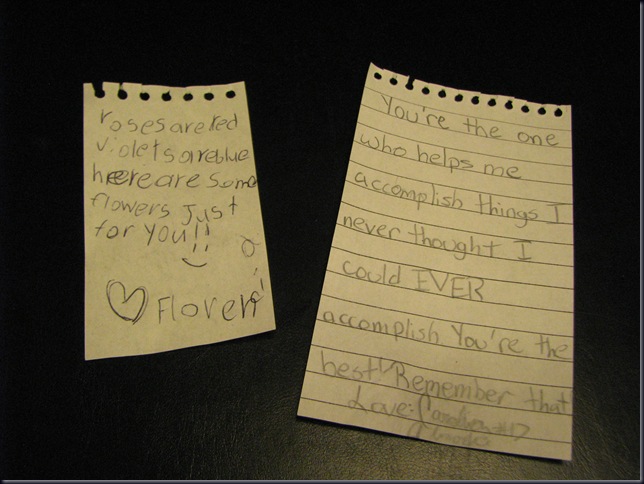 roses are red
violets are blue
heere are some
flowers just
for you!!
You're the one
who helps me
accomplish things I
never thought I
could EVER
accomplish You're the
best! Remember that
Love: